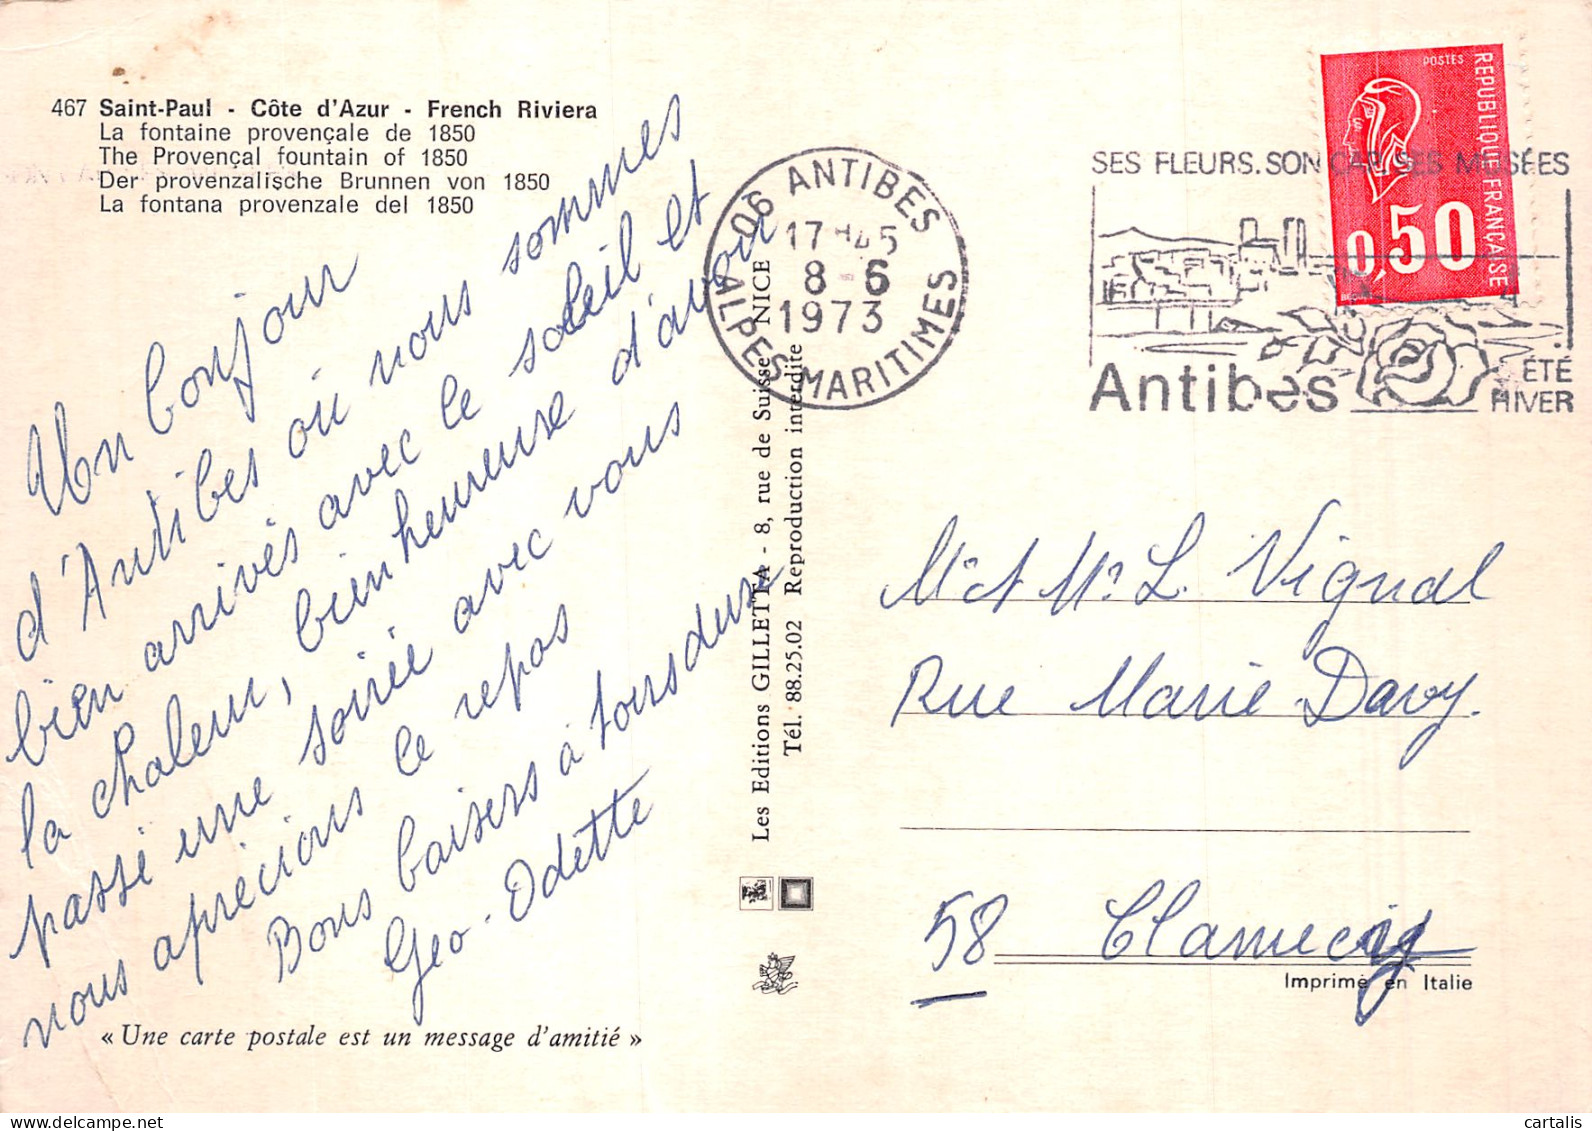 467 Saint-Paul - Côte d'Azur - French Riviera
La fontaine provençale de 1850
The Provençal fountain of 1850
Der provenzalische Brunnen von 1850
La fontana provenzale del 1850
Un bonjour
d'Antibes où nous sommes
bien arrivés avec le soleil et
la chaleur, bien heureuse d'avoir
passé une soirée avec vous
nous aprécions le repos
Bons baisers à tous deux
Géo - Odette
« Une carte postale est un message d'amitié »
Les Editions GILLETTA - 8, rue de Suisse NICE
Tél. 88.25.02 Reproduction interdite
06 ANTIBES
17H45
8-6
1973
ALPES-MARITIMES
SES FLEURS. SON CAP. SES MUSÉES
Antibes
ÉTÉ
HIVER
POSTES
REPUBLIQUE FRANÇAISE
0,50
Mr et Me L. Vignal
Rue Marie Davy.
58 Clamecy
Imprimé en Italie
cartalis